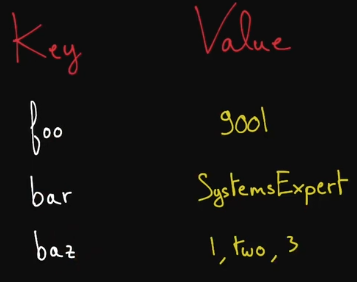 Key Value
foo 9001
bar SystemsExpert
baz 1, two, 3